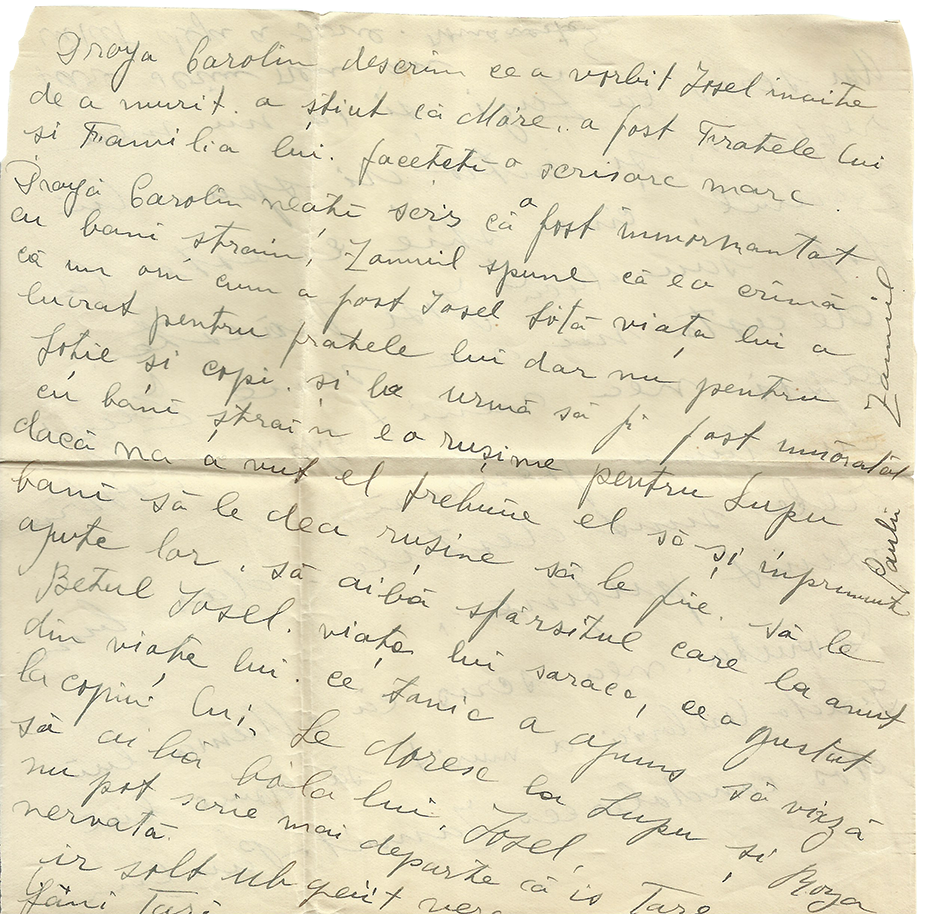 Draga Carolin descrim ce a vorbit Iosel inaite
de a murit. a știut că Mare.. a fost Fratele lui
si Familia lui. faceteti o scrisoare mare.
Dragă Carolin neati scris că a fost inmormantat
cu bani straini, Zamuil spune că e o crimă
că un om cum a fost Iosel totă viața lui a
lucrat pentru fratele lui dar nu pentru
Soție si copi. si la urmă să fi fost
cu bani străin e o rușine pentru Lupu
dacă na a vut el trebuie el să și inprumut
bani să le dea rusine să le fie. să le
ajute lor. să aibă sfârsitul care la avut
Betul Iosel. viața lui saracă, ce a gustat
din viața lui. ce Zanic a ajuns să vază
la copiii lui. Le doresc la Lupu si Roza
să ai ba bóla lui Iosel,
nu pot scrie mai departe că is Tare
nervată.
ir solt uh
Tară
Zamuil
Paulin